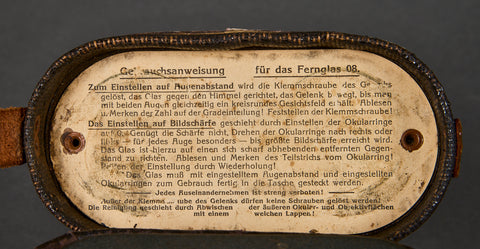 Ge auchsanweisung für das Fernglas 08.
Zum Einstellen auf Augenabstand wird die Klemmschraube des Ge
gelöst, das Glas gegen den Himmel gerichtet, das Gelenk b wegt, bis man
mit beiden Augen gleichzeitig ein kreisrundes Gesichtsfeld erhält. Ablesen
u. Merken der Zahl auf der Gradeinteilung! Feststellen der Klemmschraube!
Das Einstellen auf Bildschärfe geschieht durch Einstellen der Okularringe
auf 0. Genügt die Schärfe nicht, Drehen der Okularringe nach rechts oder
links — für jedes Auge besonders — bis größte Bildschärfe erreicht wird.
Das Glas ist hierzu auf einen sich scharf abhebenden entfernten Gegen-
stand zu richten. Ablesen und Merken des Teilstrichs vom Okularring!
der Einstellung durch Wiederholung!
Das Glas muß mit eingestelltem Augenabstand und eingestellten
Okularringen zum Gebrauch fertig in die Tasche gesteckt werden.
Jedes Auseinandernehmen ist streng verboten!
Außer der Klemms ube des Gelenks dürfen keine Schrauben gelöst werden!
Die Reinigung geschieht durch Abwischen der äußeren Okular- und Objektivflächen
mit einem weichen Lappen!